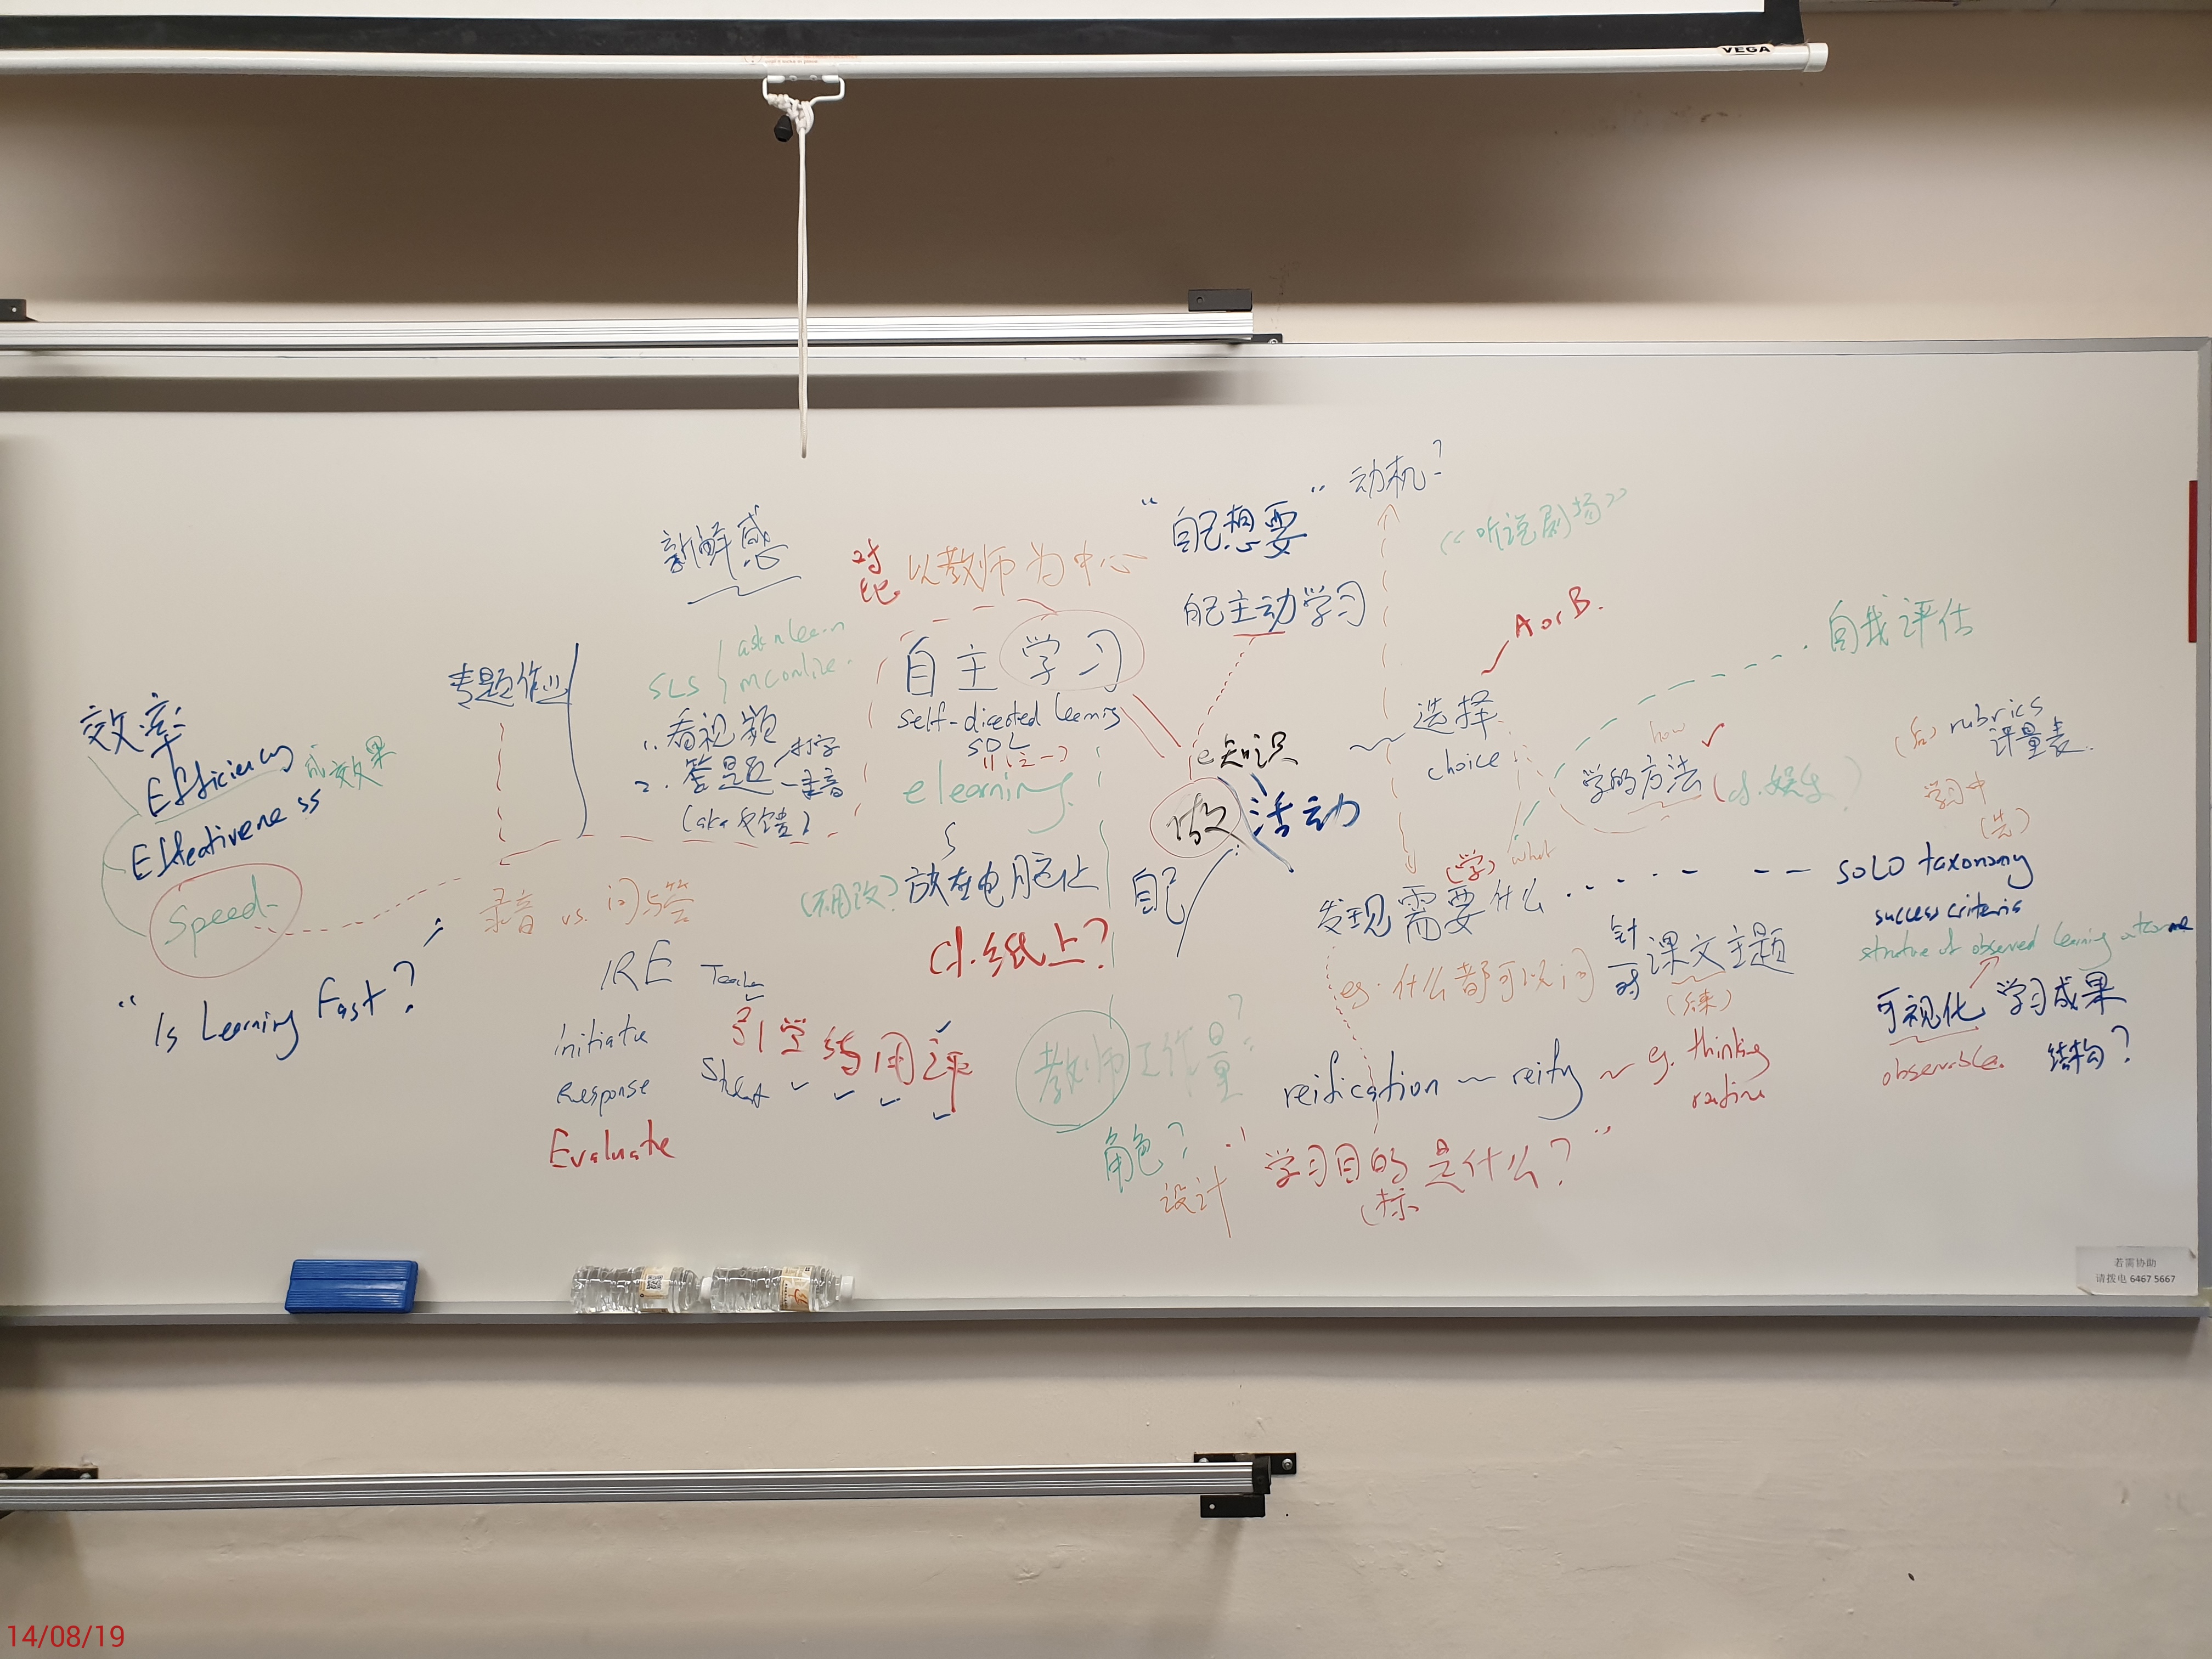 VEGA
"自己想要" 动机?
《听说剧场》
新鲜感
对比 以教师为中心
自己主动学习
A or B.
自我评估
自主学习
self-directed learning
SDL
(之一)
elearning
SLS
ask n learn
mconline
专题作业
1. 看视频
2. 答题
打字
录音
效率
Efficiency
成效果
Effectiveness
Speed
"Is Learning Fast?"
录音 vs. 问与答
放在电脑让
cf. 纸上?
知识
做 活动
自己
选择
choice
how
学的方法
what
(学)
发现需要什么
SOLO taxonomy
success criteria
structure of observed learning outcome
(后) rubrics
评量表
学习中
(先)
eg. 什么都可以问
针对 课文主题
可视化 学习成果
结构?
observable.
IRE
Initiate
Response
Evaluate
Teacher
Student
引学练用评
教师工作量?
角色?
设计
reification ~ reify ~ eg. thinking
routine
"学习目的是什么?"
(标
若需协助
请拨电 6467 5667
14/08/19